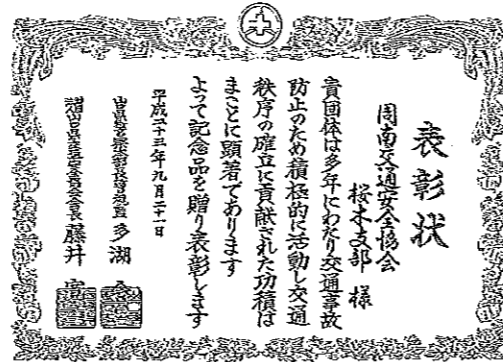 表彰状
周南交通安全協会
桜木支部 様
貴団体は多年にわたり交通事故
防止のため積極的に活動し交通
秩序の確立に貢献された功績は
まことに顕著であります
よって記念品を贈り表彰します
平成二十三年九月二十一日
山口県警察本部長警視監 多湖
山口県交通安全協会会長 藤井